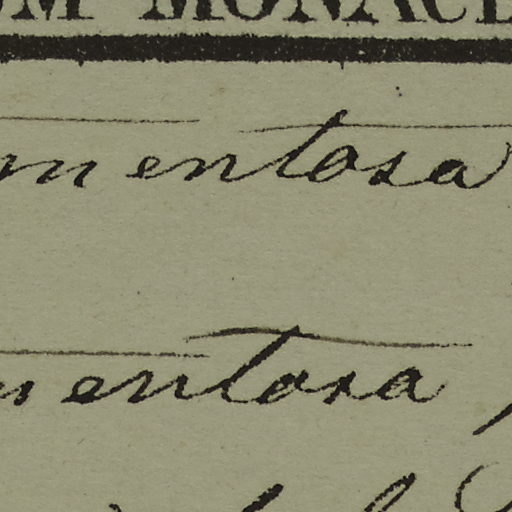 OM MONACE
mentosa
mentosa,